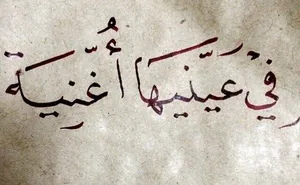 في عينيها أُغنية